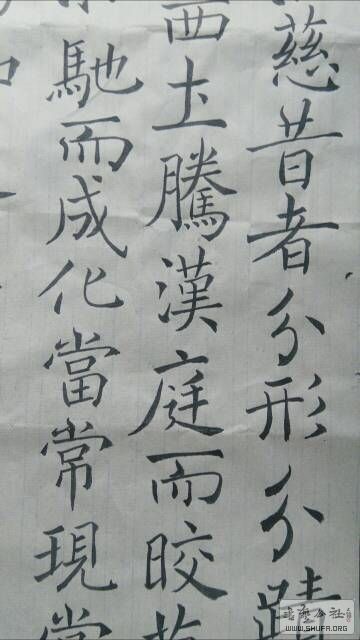 慈昔者分形分蹟
西土騰漢庭而皎
馳而成化當常現常
WWW.SHUFA.ORG